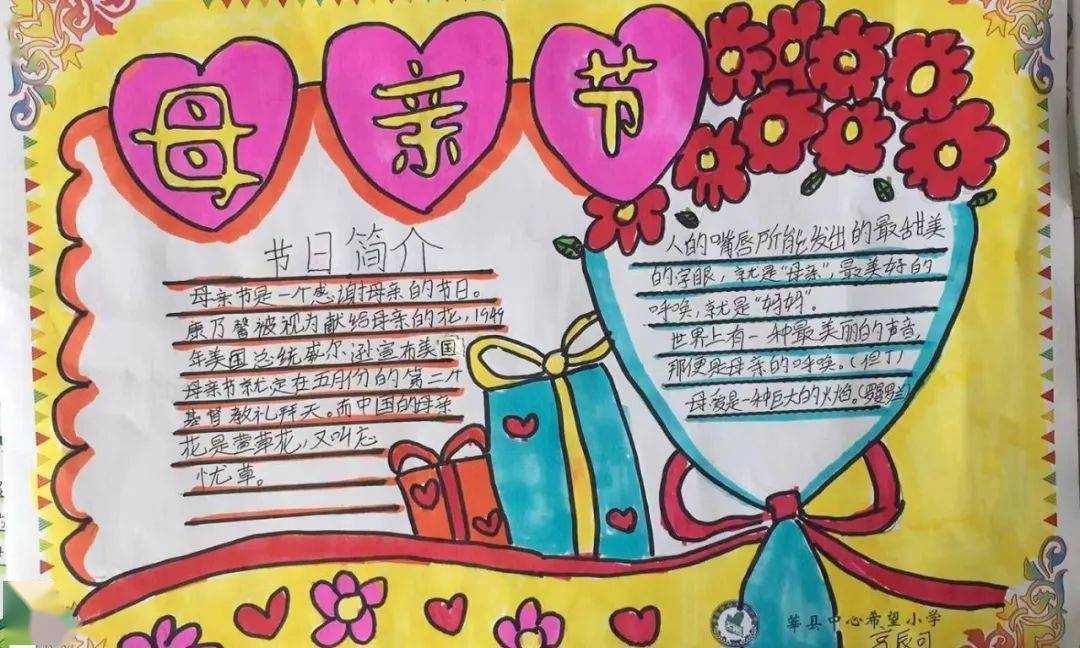 母亲节
节日简介
母亲节是一个感谢母亲的节日。
康乃馨被视为献给母亲的花，1949
年美国总统威尔逊宣布美国
母亲节就定在五月份的第二个
基督教礼拜天。而中国的母亲
花是萱草花，又叫忘
忧草。
人的嘴唇所能发出的最甜美
的字眼，就是“母亲”，最美好的
呼唤，就是“妈妈”。
世界上有一种最美丽的声音，
那便是母亲的呼唤。（但丁）
母爱是一种巨大的火焰。（罗曼罗兰）
莘县中心希望小学